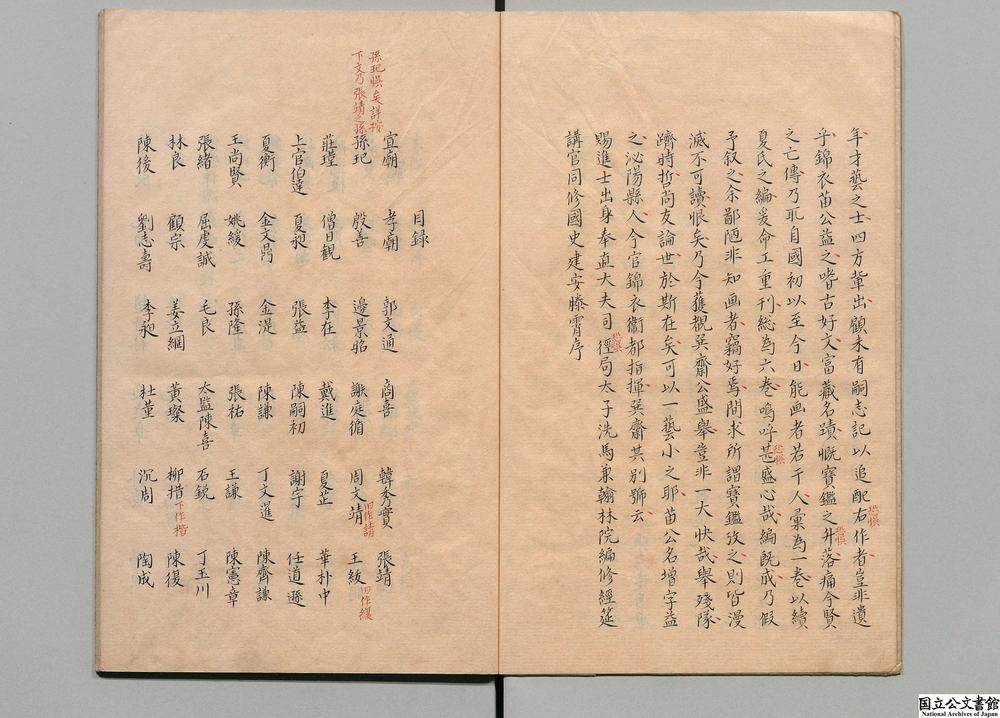 年才藝之士四方輩出顧未有嗣志記以追配右作者豈非遺
恐悞
乎錦衣苗公益之嗜古好文富藏名蹟慨寶鑑之舛落痛今賢
恐悞
之亡傳乃取自國初以至今日能画者若干人彙為一卷以續
夏氏之編爰命工重刊総為六巻嗚呼甚盛心哉編既成乃假
恐悞
予叙之余鄙陋非知画者竊好焉間求所謂寶鑑攷之則皆漫
滅不可讀恨矣乃今獲観巽齋公盛舉豈非一大快哉舉殘隊
躋時哲尚友論世於斯在矣可以一藝小之耶苗公名增字益
之泌陽縣人今官錦衣衞都指揮巽齋其別號云
賜進士出身奉直大夫司徑局太子洗馬兼翰林院編修經筵
恐悞
講官同修國史建安滕霄序
目録
孫玘悞矣詳按
下文乃張靖之孫
宣廟 孝廟 郭文通 商喜 韓秀實 張靖
孫玘 殷善 邊景昭 謝庭循 周文靖 王紱
旧作請
旧作綬
莊瑝 僧日觀 李在 戴進 夏芷 華朴中
上官伯達 夏昶 張益 陳嗣初 謝宇 任道遜
夏衡 金文鼎 金湜 陳謙 丁文暹 陳齊謙
王尚賢 姚綬 孫隆 張祐 王謙 陳憲章
張緒 屈虔誠 毛良 太監陳喜 石鋭 丁玉川
林良 顧宗 姜立綱 黄璨 柳揩 陳復
下作楷
陳後 劉志壽 李昶 杜菫 沉周 陶成
国立公文書館
National Archives of Japan